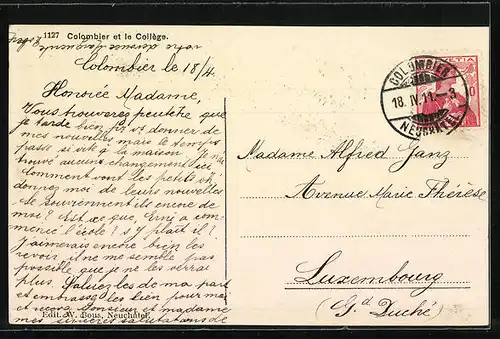 1127 Colombier et le Collège.
votre dévouée
Colombier le 18/4
Honorée Madame,
Vous trouverez peutêtre que
je tarde bien, et donner de
mes nouvelles mais le temps
passe si vite à la maison. Je n'ai
trouvé aucun changement ici
Comment vont les petits
donnez moi de leurs nouvelles
se souviennent ils encore de
moi? Est-ce que, Erni a com-
mencé l'école? s'y plait il?
J'aimerais encore bien les
revoir il ne me semble pas
possible que je ne les verrai
plus. Saluez les de ma part
et embrasse les bien pour moi
et recevez Monsieur et madame
mes sincères salutations de
Edit. W. Bous, Neuchâtel.
COLOMBIER
18. IV. 11. – 3
NEUCHATEL
HELVETIA
10
Madame Alfred Ganz
Avenue Marie Thérèse
Luxembourg
(Gd Duché)